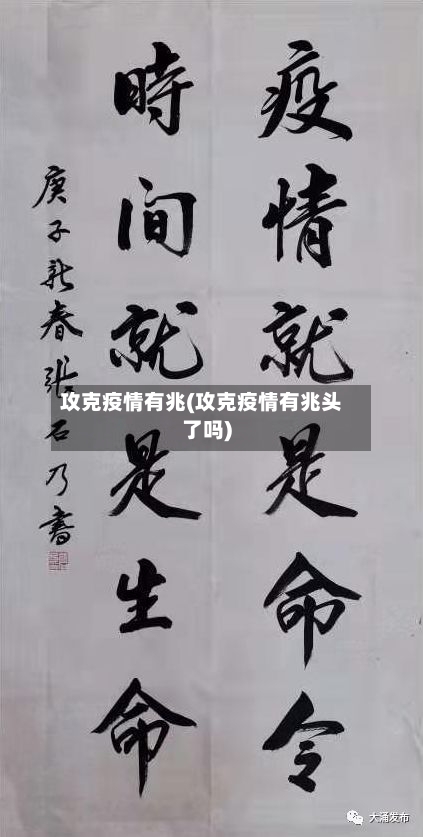 疫情就是命令
時间就是生命
庚子新春張石乃書
攻克疫情有兆(攻克疫情有兆头
了吗)
大涌发布